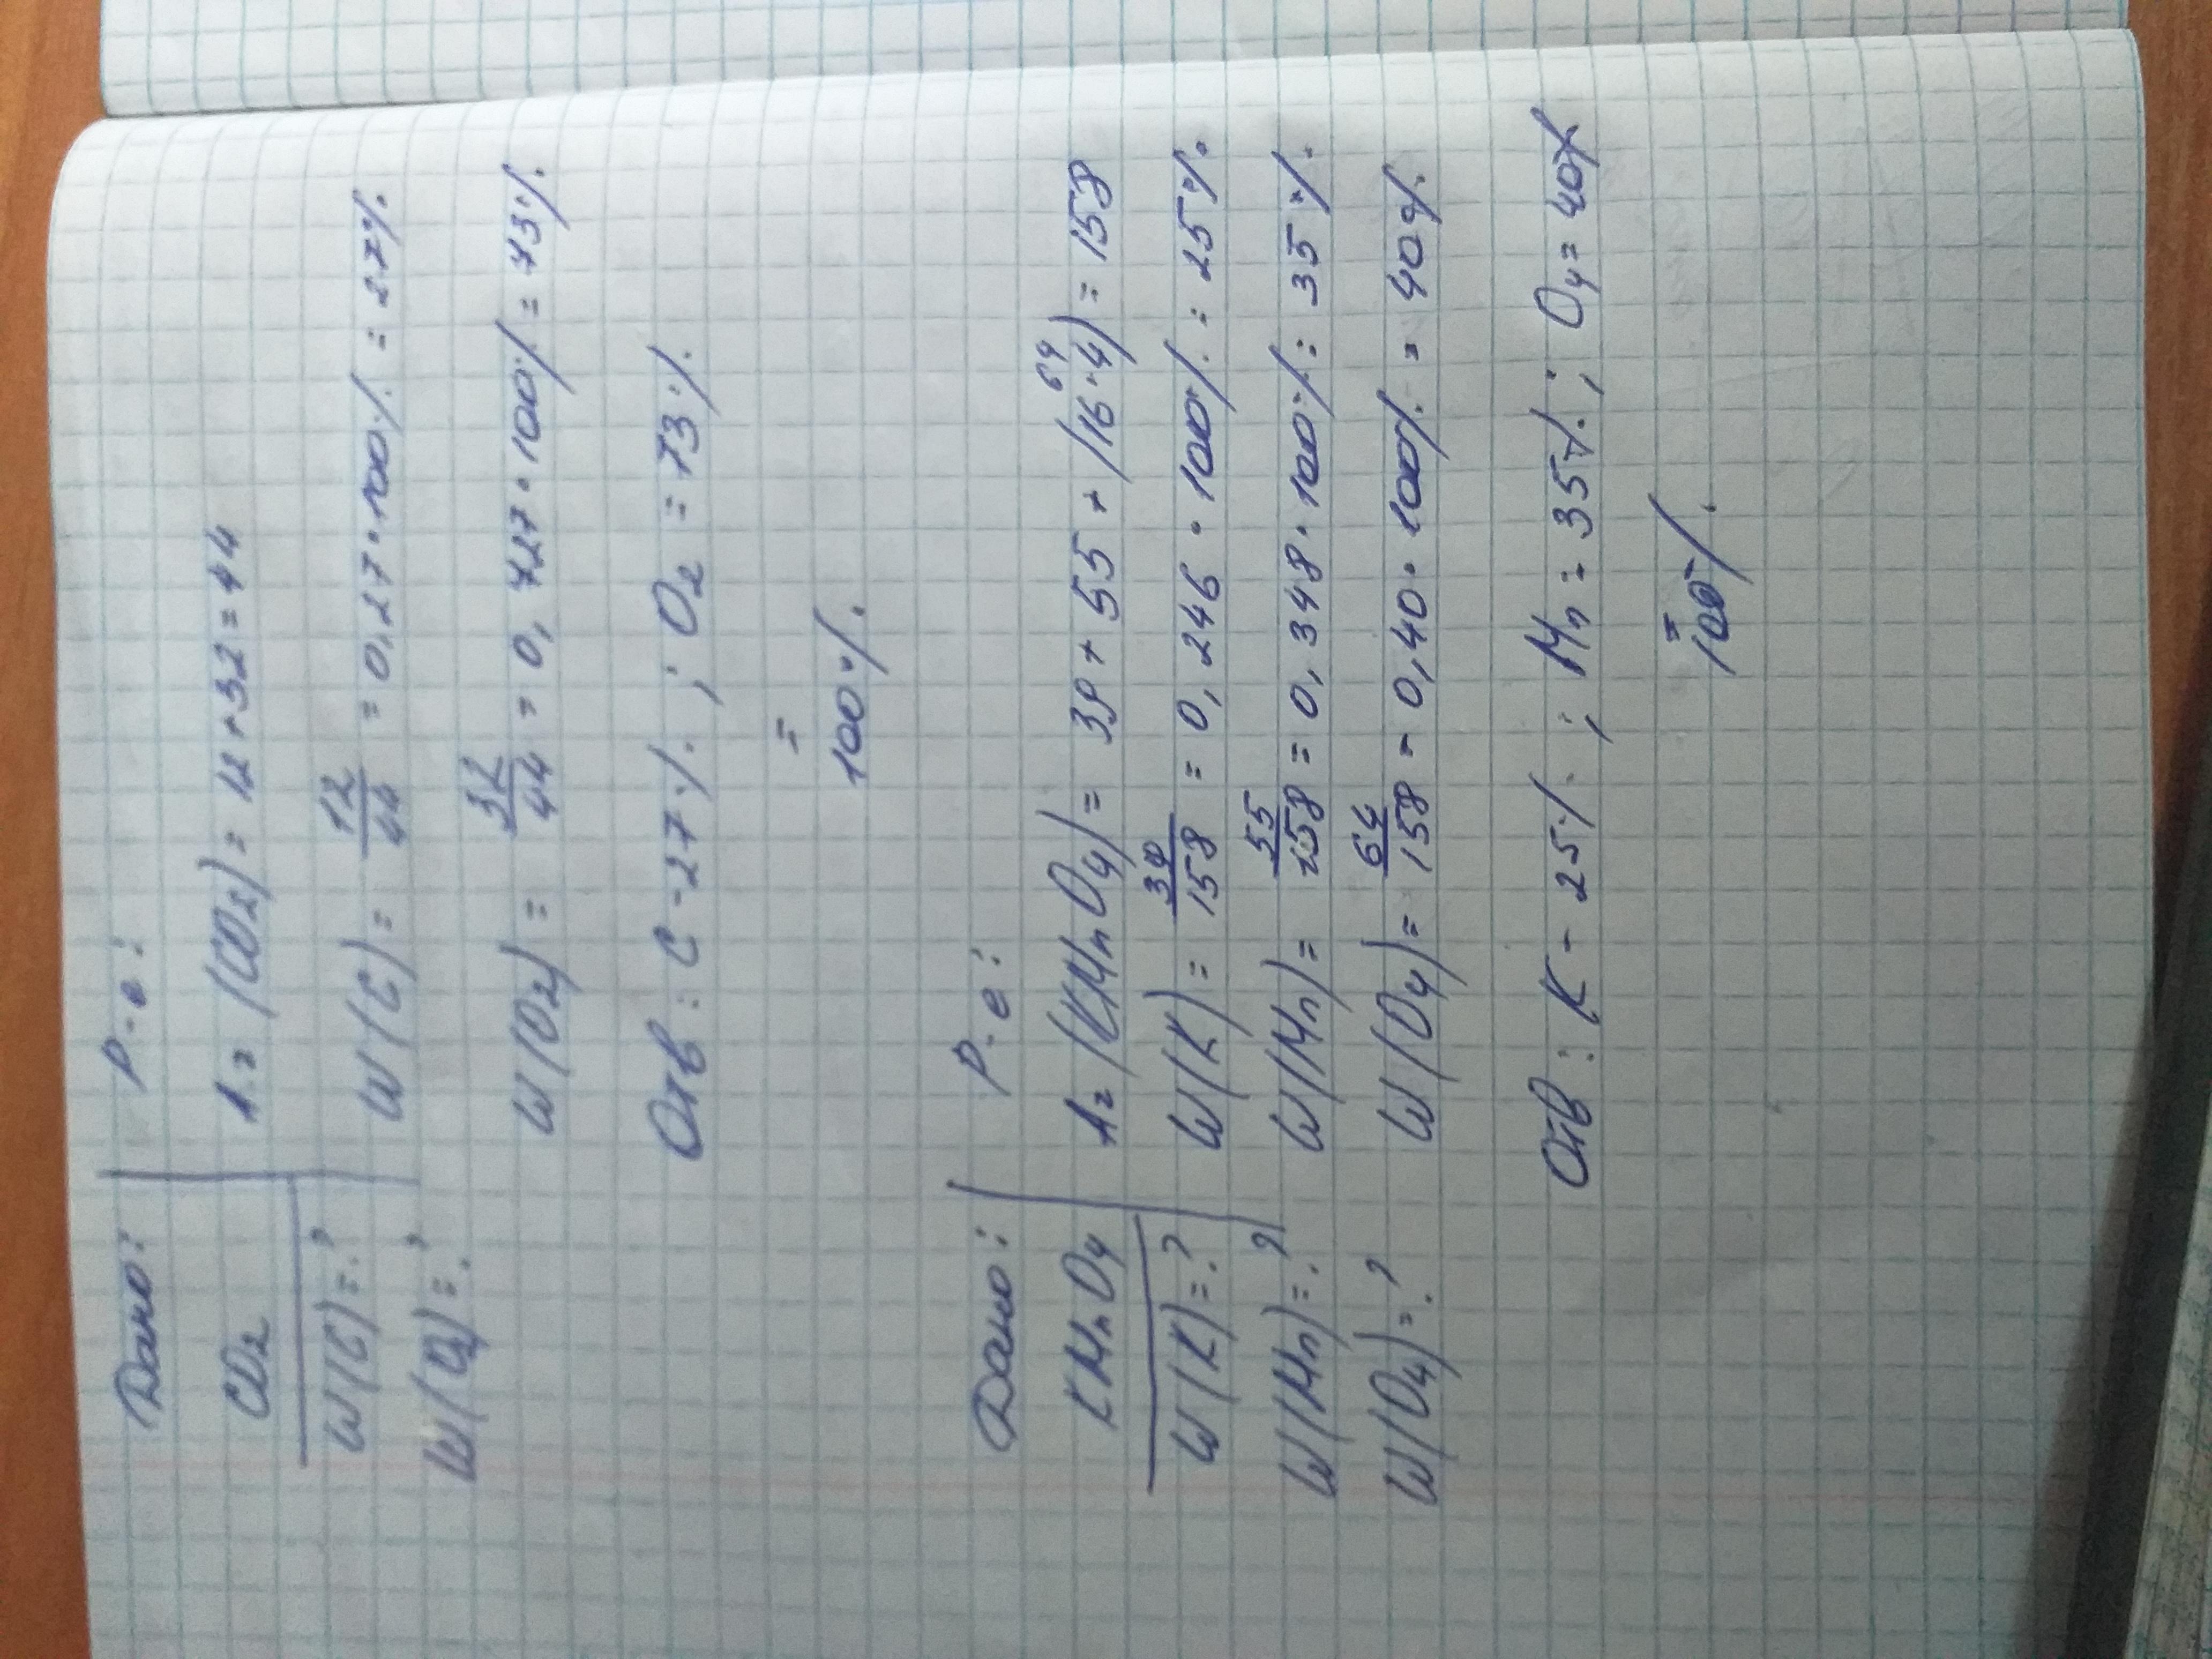 Дано: Р-е:
CO₂ Аг (CO₂) = 12 + 32 = 44
W(C) = ? W(C) = 12/44 = 0,27 · 100% = 27%
W(O₂) = ? W(O₂) = 32/44 = 0,727 · 100% = 73%
Отв: C - 27%; O₂ = 73%
=
100%
Дано: Р-е:
KMnO₄ Аг (KMnO₄) = 39 + 55 + (16·4) = 158
64
W(K) = ? W(K) = 39/158 = 0,246 · 100% = 25%
W(Mn) = ? W(Mn) = 55/158 = 0,348 · 100% = 35%
W(O₄) = ? W(O₄) = 64/158 = 0,40 · 100% = 40%
Отв: K - 25%; Mn = 35%; O₄ = 40%
=
100%